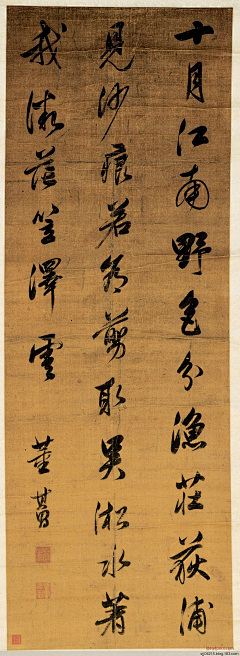 十月江南野色分漁莊荻浦
見沙痕若為剪取吳淞水著
我笠澤雲
董其昌